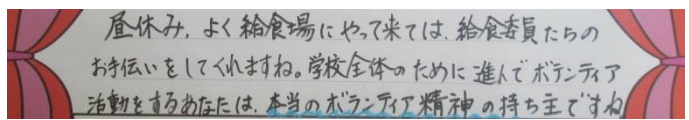 昼休み、よく給食場にやって来ては、給食委員たちの
お伝いをしてくれますね。学校全体のために進んでボテンティア
活動をするあなたは、本当のボランティア精神の持ち主ですね